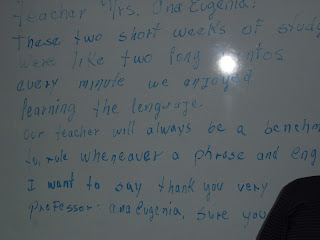 Teacher Mrs. Ana Eugenia:
These two short weeks of study
were like two long
every minute we enjoyed
learning the lenguage
our teacher will always be a benchm
to, rule wheneaver a phrase and eng
I want to say thank you very
Professor: ana Eugenia, sure you